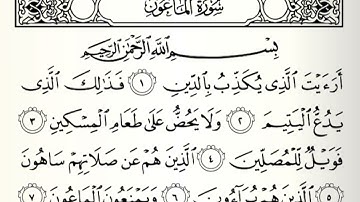 سُورَةُ الْمَاعُونِ
بِسْمِ اللَّهِ الرَّحْمَٰنِ الرَّحِيمِ
أَرَءَيْتَ الَّذِى يُكَذِّبُ بِالدِّينِ ۝١ فَذَٰلِكَ الَّذِى
يَدُعُّ الْيَتِيمَ ۝٢ وَلَا يَحُضُّ عَلَىٰ طَعَامِ الْمِسْكِينِ ۝٣
فَوَيْلٌ لِّلْمُصَلِّينَ ۝٤ الَّذِينَ هُمْ عَن صَلَاتِهِمْ سَاهُونَ
۝٥ الَّذِينَ هُمْ يُرَآءُونَ ۝٦ وَيَمْنَعُونَ الْمَاعُونَ ۝٧